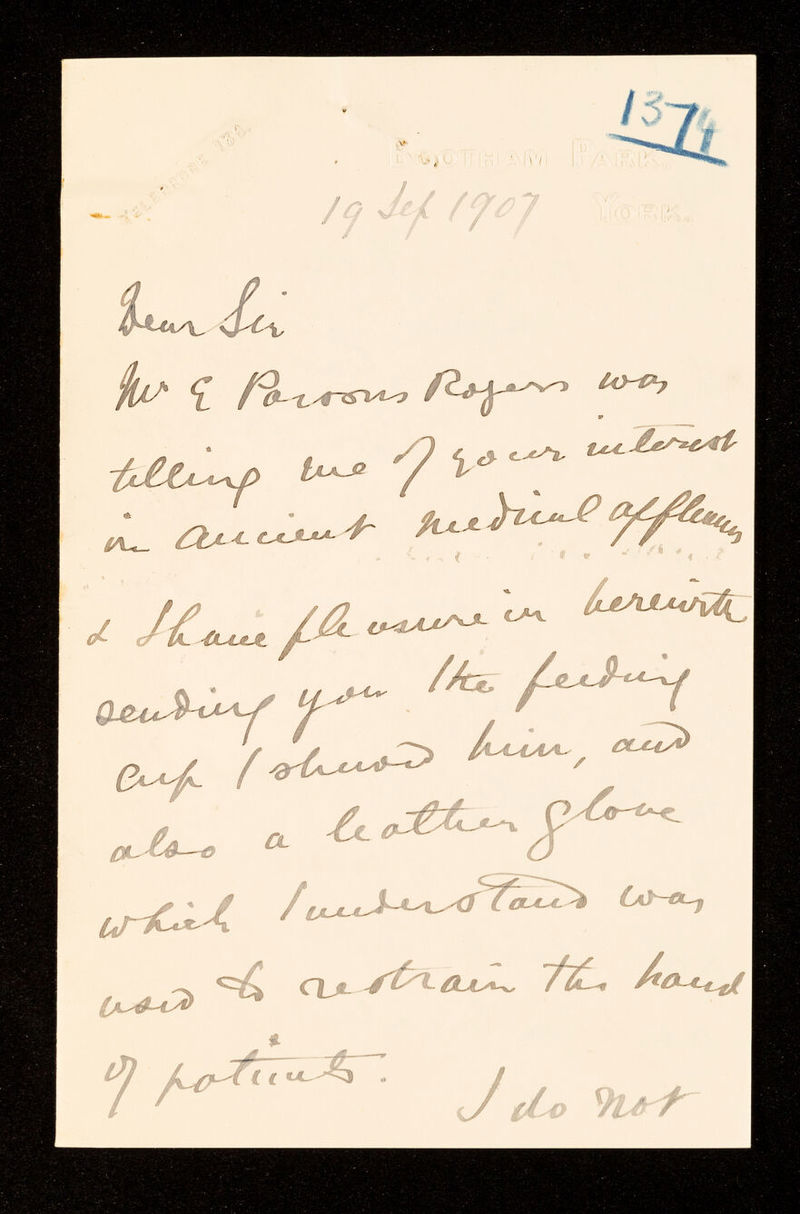 1374
TELEPHONE 132.
BOOTHAM PARK.
YORK.
19 Sep 1907
Dear Sir
Mr E Parsons Rogers was
telling me of your interest
in ancient medical
& I have pleasure in herewith
sending you the feeding
cup I showed him, and
also a leather glove
which I understand was
used to restrain the hand
of patients.
I do not